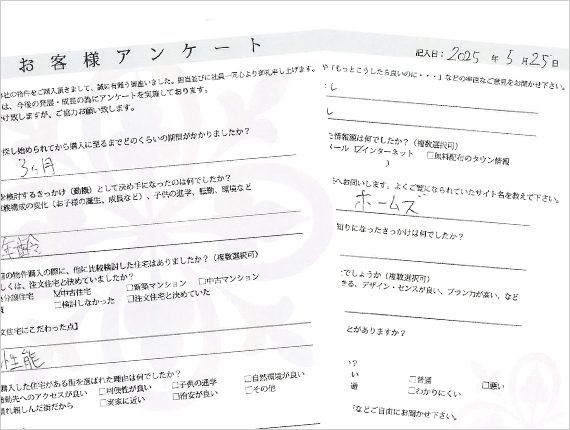 お客様アンケート
記入日：2025 年 5 月 25 日
社の物件をご購入頂きまして、誠に有難う御座いました。担当並びに社員一同心より御礼申し上げます。
は、今後の発展・成長の為にアンケートを実施しております。
け致しますが、ご協力お願い致します。
探し始められてから購入に至るまでどのくらいの期間がかかりましたか？
3ヶ月
を検討するきっかけ（動機）として決め手になったのは何でしたか？
族構成の変化（お子様の誕生、成長など）、子供の進学、転勤、環境など
年齢
回の物件購入の際に、他に比較検討した住宅はありましたか？（複数選択可）
しくは、注文住宅と決めていましたか？
分譲住宅 ☑中古住宅 □新築マンション □中古マンション
□検討しなかった □注文住宅と決めていた
文住宅にこだわった点】
性能
購入した住宅がある街を選ばれた理由は何でしたか？
勤先へのアクセスが良い □利便性が良い □子供の通学 □自然環境が良い
慣れ親しんだ街だから □実家に近い □治安が良い □その他
や「もっとこうしたら良いのに・・・」などの率直なご意見をお聞かせ下さい。
し
し
情報源は何でしたか？（複数選択可）
ール ☑インターネット □無料配布のタウン情報
）
へお伺いします。よくご覧になられていたサイト名を教えて下さい。
ホームズ
知りになったきっかけは何でしたか？
でしょうか（複数選択可）
きる、デザイン・センスが良い、プラン力が高い、など
とがありますか？
？
い □普通 □悪い
適 □わかりにくい
などご自由にお聞かせ下さい。